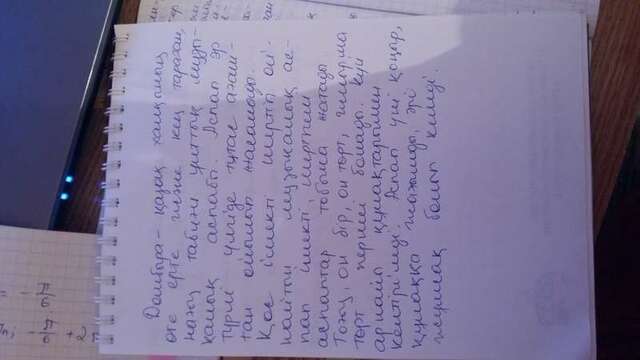 Домбыра – қазақ халқының
өте ерте және кең тараған,
нағыз табиғи ұлттық музы-
калық аспабы. Аспап әр
түрлі үлгіде тұтас ағаш-
тан ойылып жасалады.
Қос ішекті шертіп ой-
налатын музыкалық ас-
пап ішекті, шертпелі
аспаптар тобына жатады
Тоғыз, он бір, он төрт, жиырма
төрт пернелі болады. Күй
арнайы құлақтарымен
келтіріледі. Аспап үні қоңыр,
құлаққа жағымды, әрі
жұмсақ болып келеді.